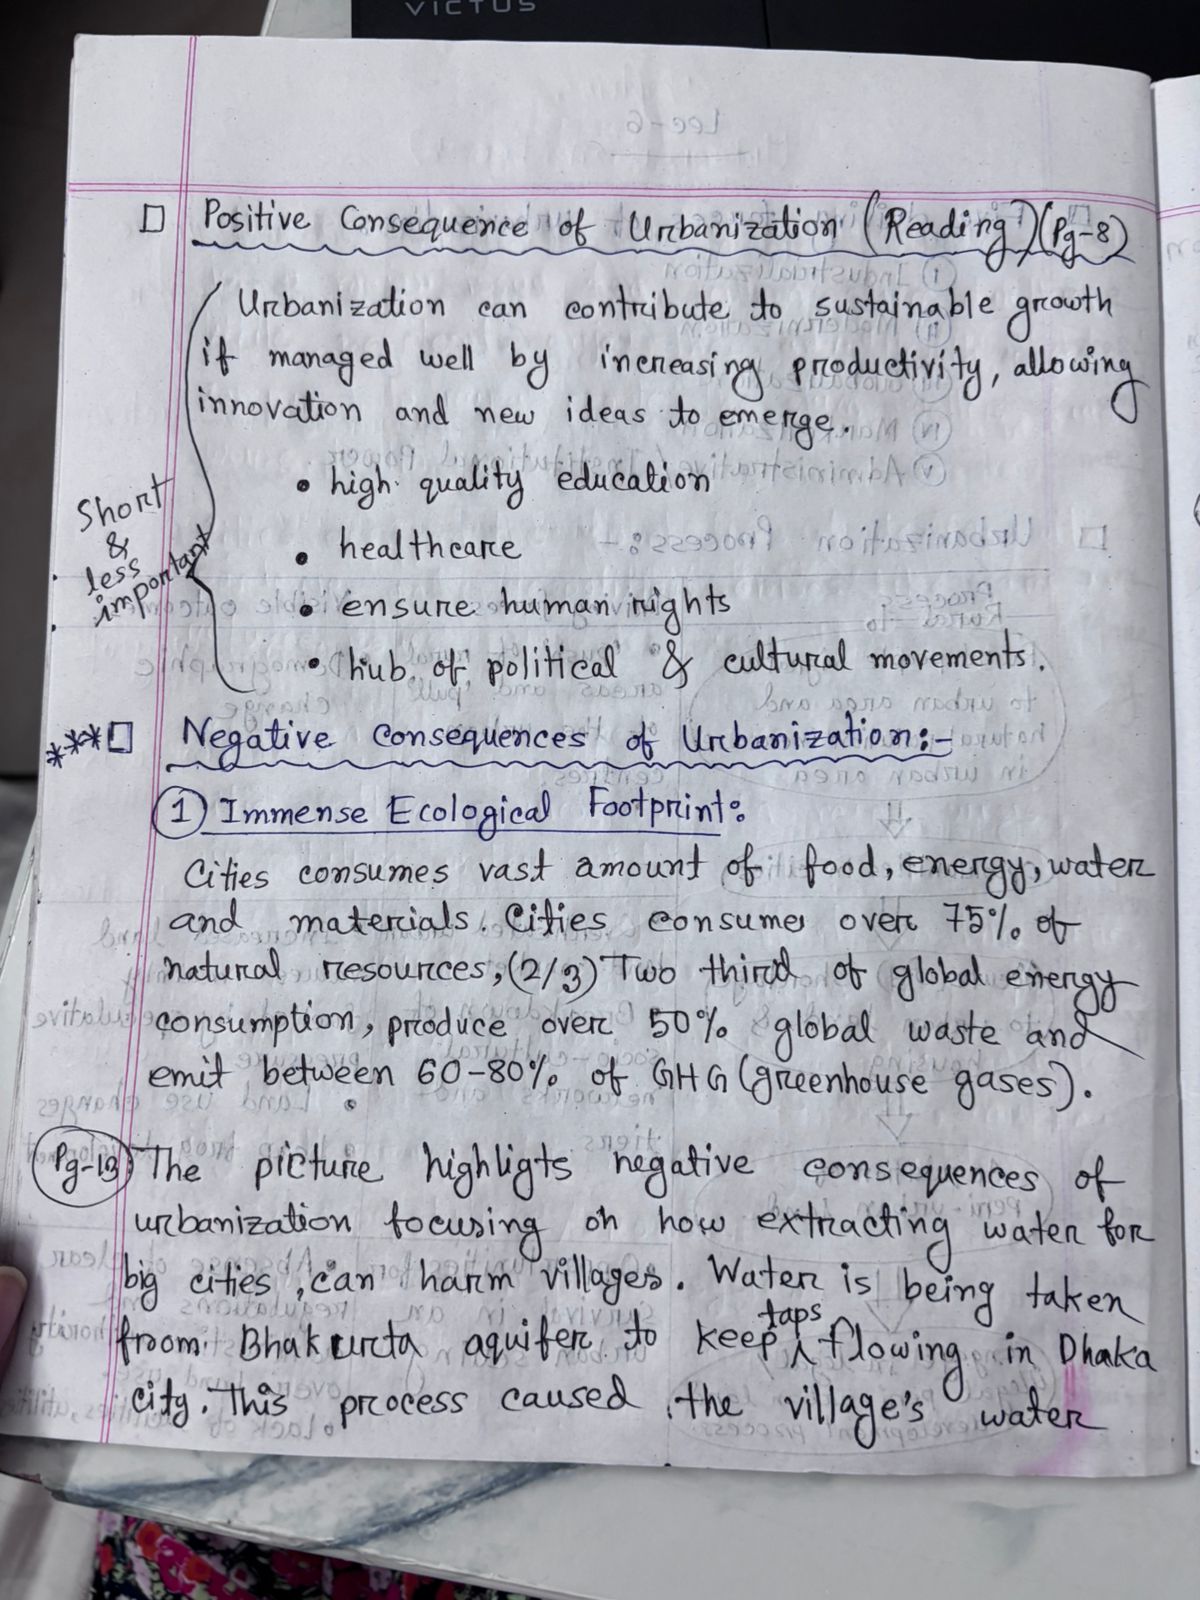 VICTUS
Positive Consequence of Urbanization (Reading) (Pg-8)
Urbanization can contribute to sustainable growth
if managed well by increasing productivity, allowing
innovation and new ideas to emerge.
• high quality education
• healthcare
• ensure human rights
• hub of political & cultural movements.
Short
&
less
important
*** Negative Consequences of Urbanization:-
1 Immense Ecological Footprint:
Cities consumes vast amount of food, energy, water
and materials. Cities consume over 75% of
natural resources, (2/3) Two third of global energy
consumption, produce over 50% global waste and
emit between 60-80% of GHG (greenhouse gases).
Pg-13 The picture highligts negative consequences of
urbanization focusing on how extracting water for
big cities, can harm villages. Water is being taken
froom Bhakurta aquifer to keep taps flowing in Dhaka
city. This process caused the village's water